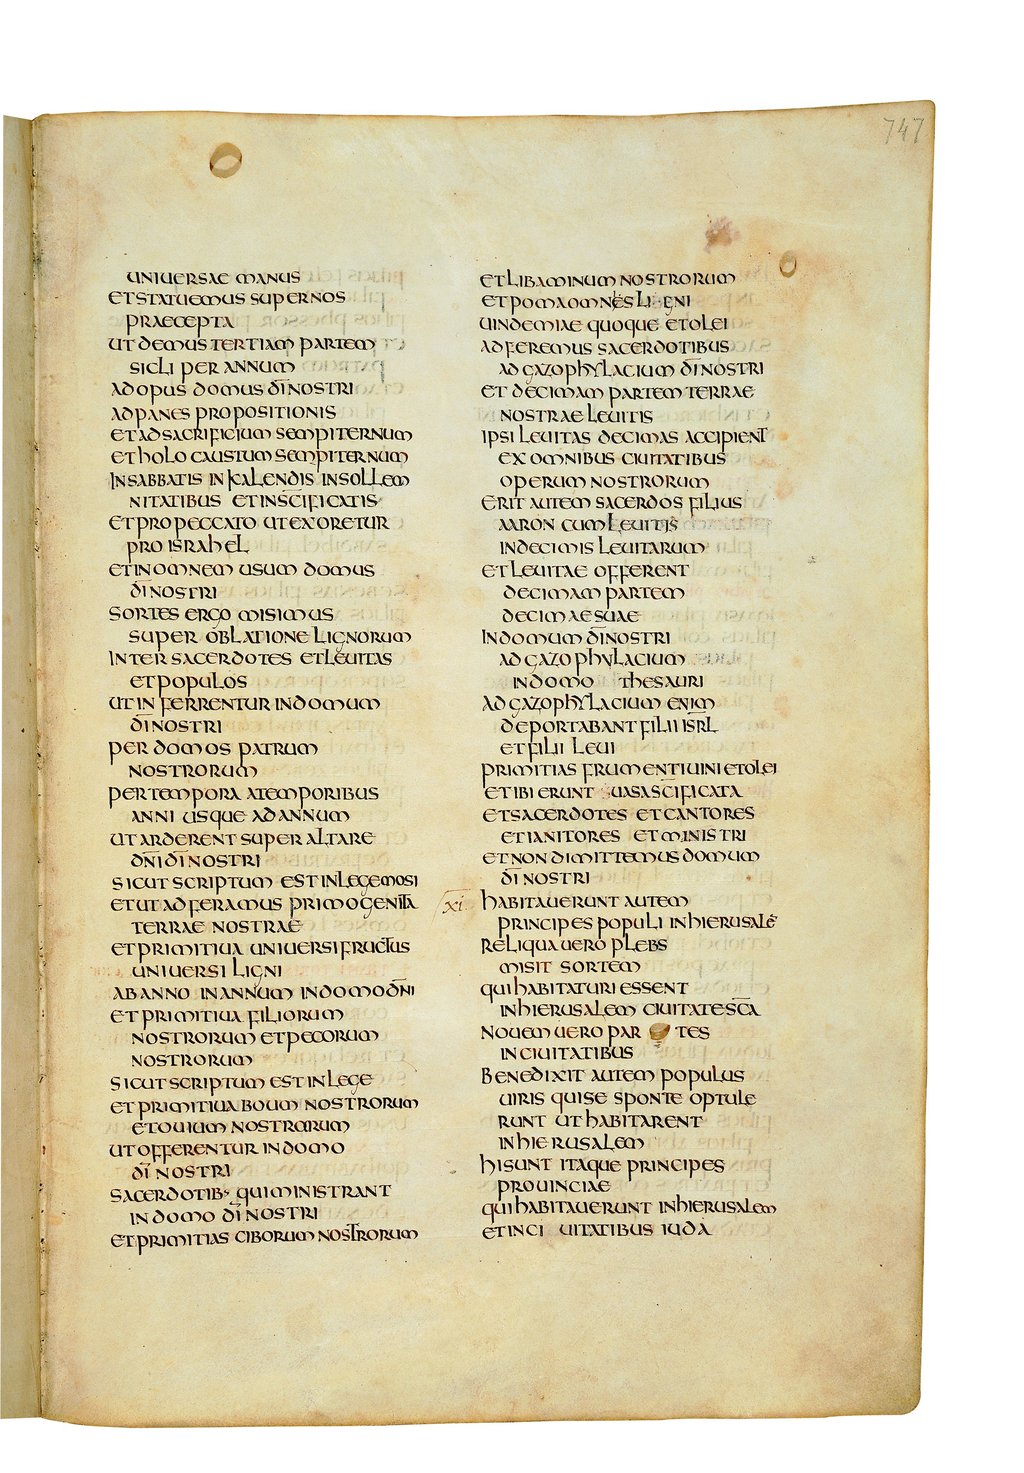 747
UNIUERSAE MANUS
ET STATUEMUS SUPER NOS
PRAECEPTA
UT DEMUS TERTIAM PARTEM
SICLI PER ANNUM
AD OPUS DOMUS DĪ NOSTRI
AD PANES PROPOSITIONIS
ET AD SACRIFICIUM SEMPITERNUM
ET HOLOCAUSTUM SEMPITERNUM
IN SABBATIS IN KALENDIS IN SOLLEM
NITATIBUS ET IN SC̄IFICATIS
ET PRO PECCATO UT EXORETUR
PRO ISRAHEL
ET IN OMNEM USUM DOMUS
DĪ NOSTRI
SORTES ERGO MISIMUS
SUPER OBLATIONE LIGNORUM
INTER SACERDOTES ET LEUITAS
ET POPULOS
UT INFERRENTUR IN DOMUM
DĪ NOSTRI
PER DOMOS PATRUM
NOSTRORUM
PER TEMPORA A TEMPORIBUS
ANNI USQUE AD ANNUM
UT ARDERENT SUPER ALTARE
DN̄I DĪ NOSTRI
SICUT SCRIPTUM EST IN LEGE MOSI
ET UT ADFERAMUS PRIMOGENITA
TERRAE NOSTRAE
ET PRIMITIUA UNIUERSI FRUCTUS
UNIUERSI LIGNI
AB ANNO IN ANNUM IN DOMO DN̄I
ET PRIMITIUA FILIORUM
NOSTRORUM ET PECORUM
NOSTRORUM
SICUT SCRIPTUM EST IN LEGE
ET PRIMITIUA BOUM NOSTRORUM
ET OUIUM NOSTRARUM
UT OFFERENTUR IN DOMO
DĪ NOSTRI
SACERDOTIB· QUI MINISTRANT
IN DOMO DĪ NOSTRI
ET PRIMITIAS CIBORUM NOSTRORUM
ET LIBAMINUM NOSTRORUM
ET POMA OMNES LI GNI
UINDEMIAE QUOQUE ET OLEI
ADFEREMUS SACERDOTIBUS
AD GAZOPHYLACIUM DĪ NOSTRI
ET DECIMAM PARTEM TERRAE
NOSTRAE LEUITIS
IPSI LEUITAS DECIMAS ACCIPIENT
EX OMNIBUS CIUITATIBUS
OPERUM NOSTRORUM
ERIT AUTEM SACERDOS FILIUS
AARON CUM LEUITIS
IN DECIMIS LEUITARUM
ET LEUITAE OFFERENT
DECIMAM PARTEM
DECIMAE SUAE
IN DOMUM DĪ NOSTRI
AD GAZOPHYLACIUM
IN DOMO THESAURI
AD GAZOPHYLACIUM ENIM
DEPORTABANT FILII ISRL̄
ET FILII LEUI
PRIMITIAS FRUMENTI UINI ET OLEI
ET IBI ERUNT UASA SC̄IFICATA
ET SACERDOTES ET CANTORES
ET IANITORES ET MINISTRI
ET NON DIMITTEMUS DOMUM
DĪ NOSTRI
XI HABITAUERUNT AUTEM
PRINCIPES POPULI IN HIERUSALĒ
RELIQUA UERO PLEBS
MISIT SORTEM
QUI HABITATURI ESSENT
IN HIERUSALEM CIUITATE SC̄A
NOUEM UERO PAR TES
IN CIUITATIBUS
BENEDIXIT AUTEM POPULUS
UIRIS QUI SE SPONTE OPTULE
RUNT UT HABITARENT
IN HIERUSALEM
HI SUNT ITAQUE PRINCIPES
PROUINCIAE
QUI HABITAUERUNT IN HIERUSALEM
ET IN CI UITATIBUS IUDA